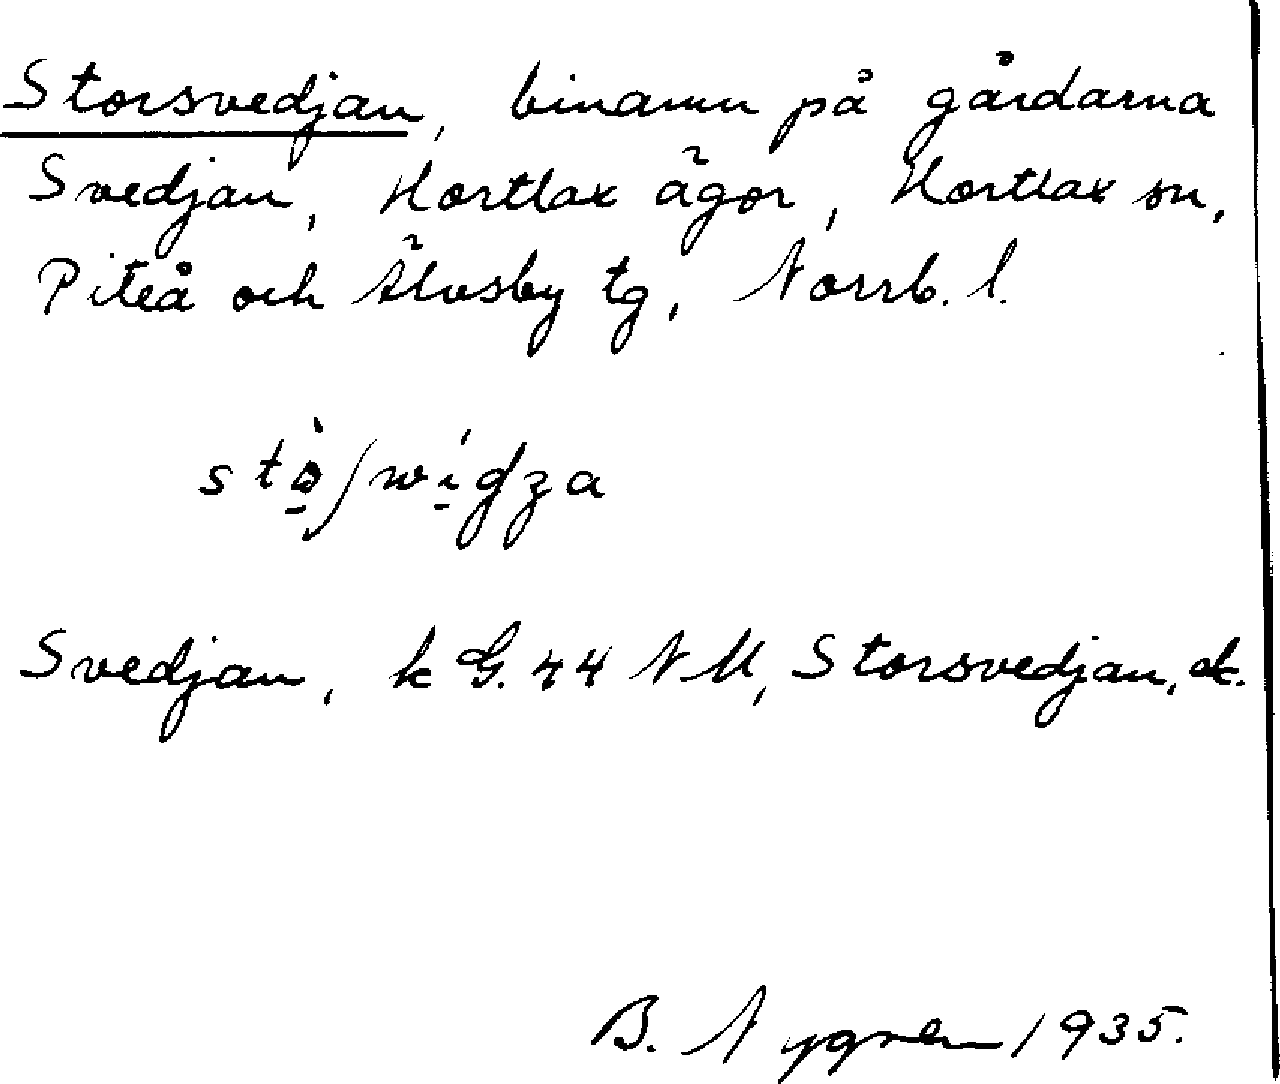 Storsvedjan, binamn på gårdarna
Svedjan, Hortlax ägor, Hortlax sn,
Piteå och Älvsby tg, Norrb. l.
Svedjan, k G. 44 NU, Storsvedjan, ek.
B. Nygren 1935.